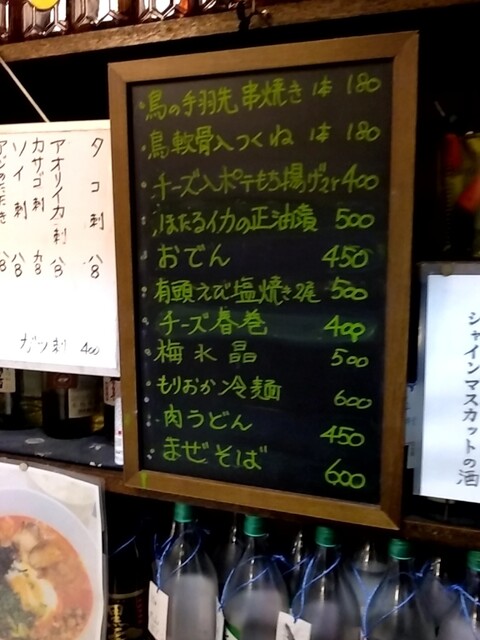 鳥の手羽先串焼き 1本 180
鳥軟骨入つくね 1本 180
チーズ入ポテもち揚げ2ヶ 400
ほたるイカの正油漬 500
おでん 450
有頭えび塩焼き2尾 500
チーズ春巻 400
梅水晶 500
もりおか冷麺 600
肉うどん 450
まぜそば 600
タコ刺
アオリイカ刺
カサゴ刺
ソイ刺
ガツ刺 400
シャインマスカットの酒